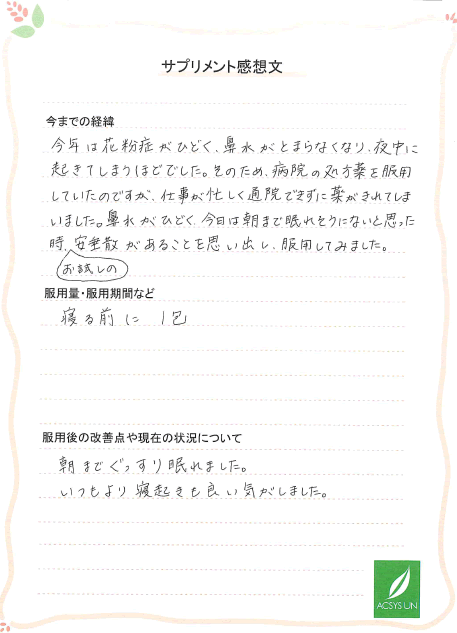 サプリメント感想文
今までの経緯
今年は花粉症がひどく、鼻水がとまらなくなり、夜中に
起きてしまうほどでした。そのため、病院の処方薬を服用
していたのですが、仕事が忙しく通院できずに薬がきれてしま
いました。鼻水がひどく、今日は朝まで眠れそうにないと思った
時、安垂散があることを思い出し、服用してみました。
お試しの
服用量・服用期間など
寝る前に 1包
服用後の改善点や現在の状況について
朝までぐっすり眠れました。
いつもより寝起きも良い気がしました。
ACSYS UN